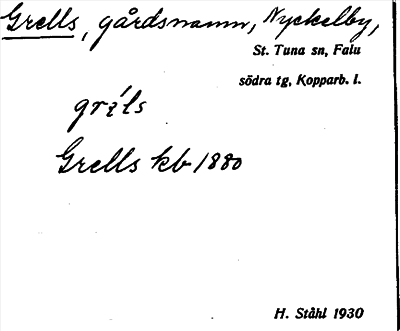 Grells, gårdsnamn, Nyckelby,
St. Tuna sn, Falu
södra tg, Kopparb. l.
Grells kb 1880
H. Ståhl 1930